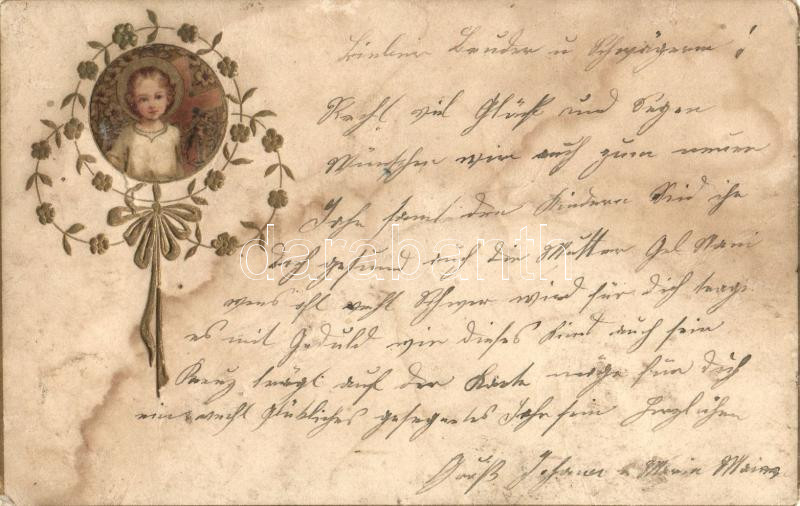 Lieber Bruder u Schwägerin !
Recht viel Glück und Segen
Wünschen wir auch zum neuen
Jahr samt den Kindern Sind ihr
doch gesund auch die Mutter
wens oft recht Schwer wird für dich trage
es mit Geduld wie dieses Kind auch sein
Kreuz trägt auf der Karte möge für dich
ein recht Glükliches gesegnetes Jahr sein herzlichen
Gruß Johann u Maria
darabanth